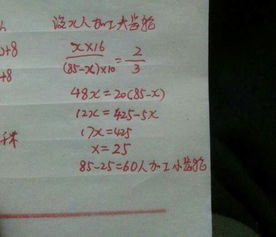 设x人加工大齿轮
x×16/(85-x)×10=2/3
48x=20(85-x)
12x=425-5x
17x=425
x=25
85-25=60人加工小齿轮
+8
+8